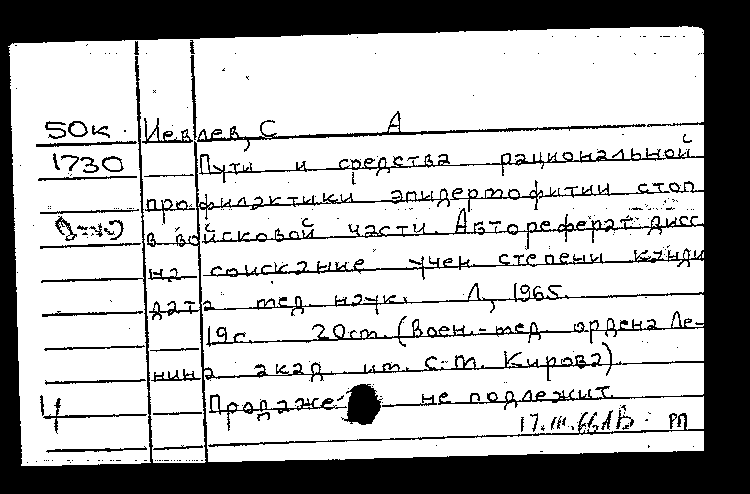 50к Иевлев, С А
1730 Пути и средства рациональной
профилактики эпидермофитии стоп
в войсковой части. Автореферат дисс
на соискание учен степени канди
дата мед. наук. Л, 1965.
19с. 20см. (Воен.-мед. ордена Ле-
нина акад им. С.М. Кирова).
Продаже не подлежит.
17.III.66 РП